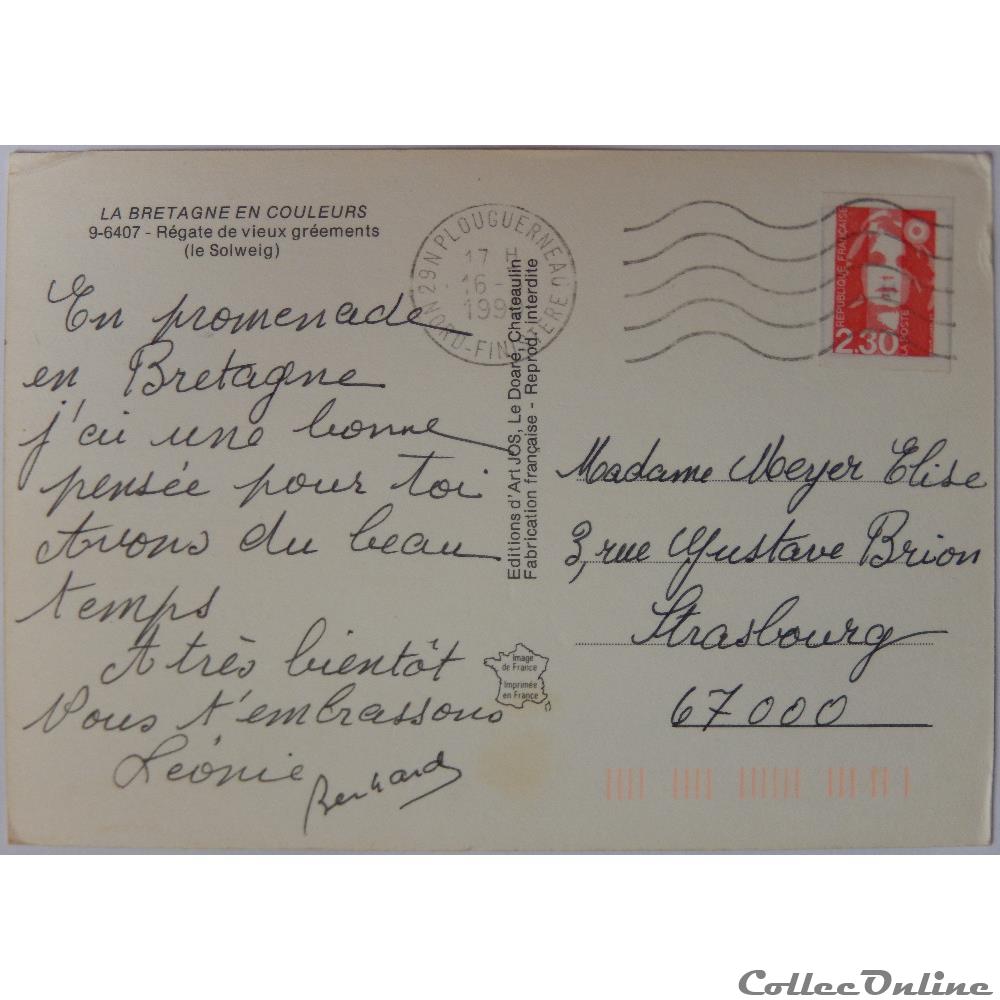 LA BRETAGNE EN COULEURS
9-6407 - Régate de vieux gréements
(le Solweig)
29 N PLOUGUERNEAU
17 H
16 -
199
NORD-FINISTERE
REPUBLIQUE FRANÇAISE
2.30
LA POSTE
En promenade
en Bretagne
j'ai une bonne
pensée pour toi
Avons du beau
temps
A très bientôt
Nous t'embrassons
Léonie
Bernard
Editions d'Art JOS, Le Doaré, Chateaulin
Fabrication française - Reprod. interdite
Image
de France
Imprimée
en France
Madame Meyer Elise
3, rue Gustave Brion
Strasbourg
67000
CollecOnline